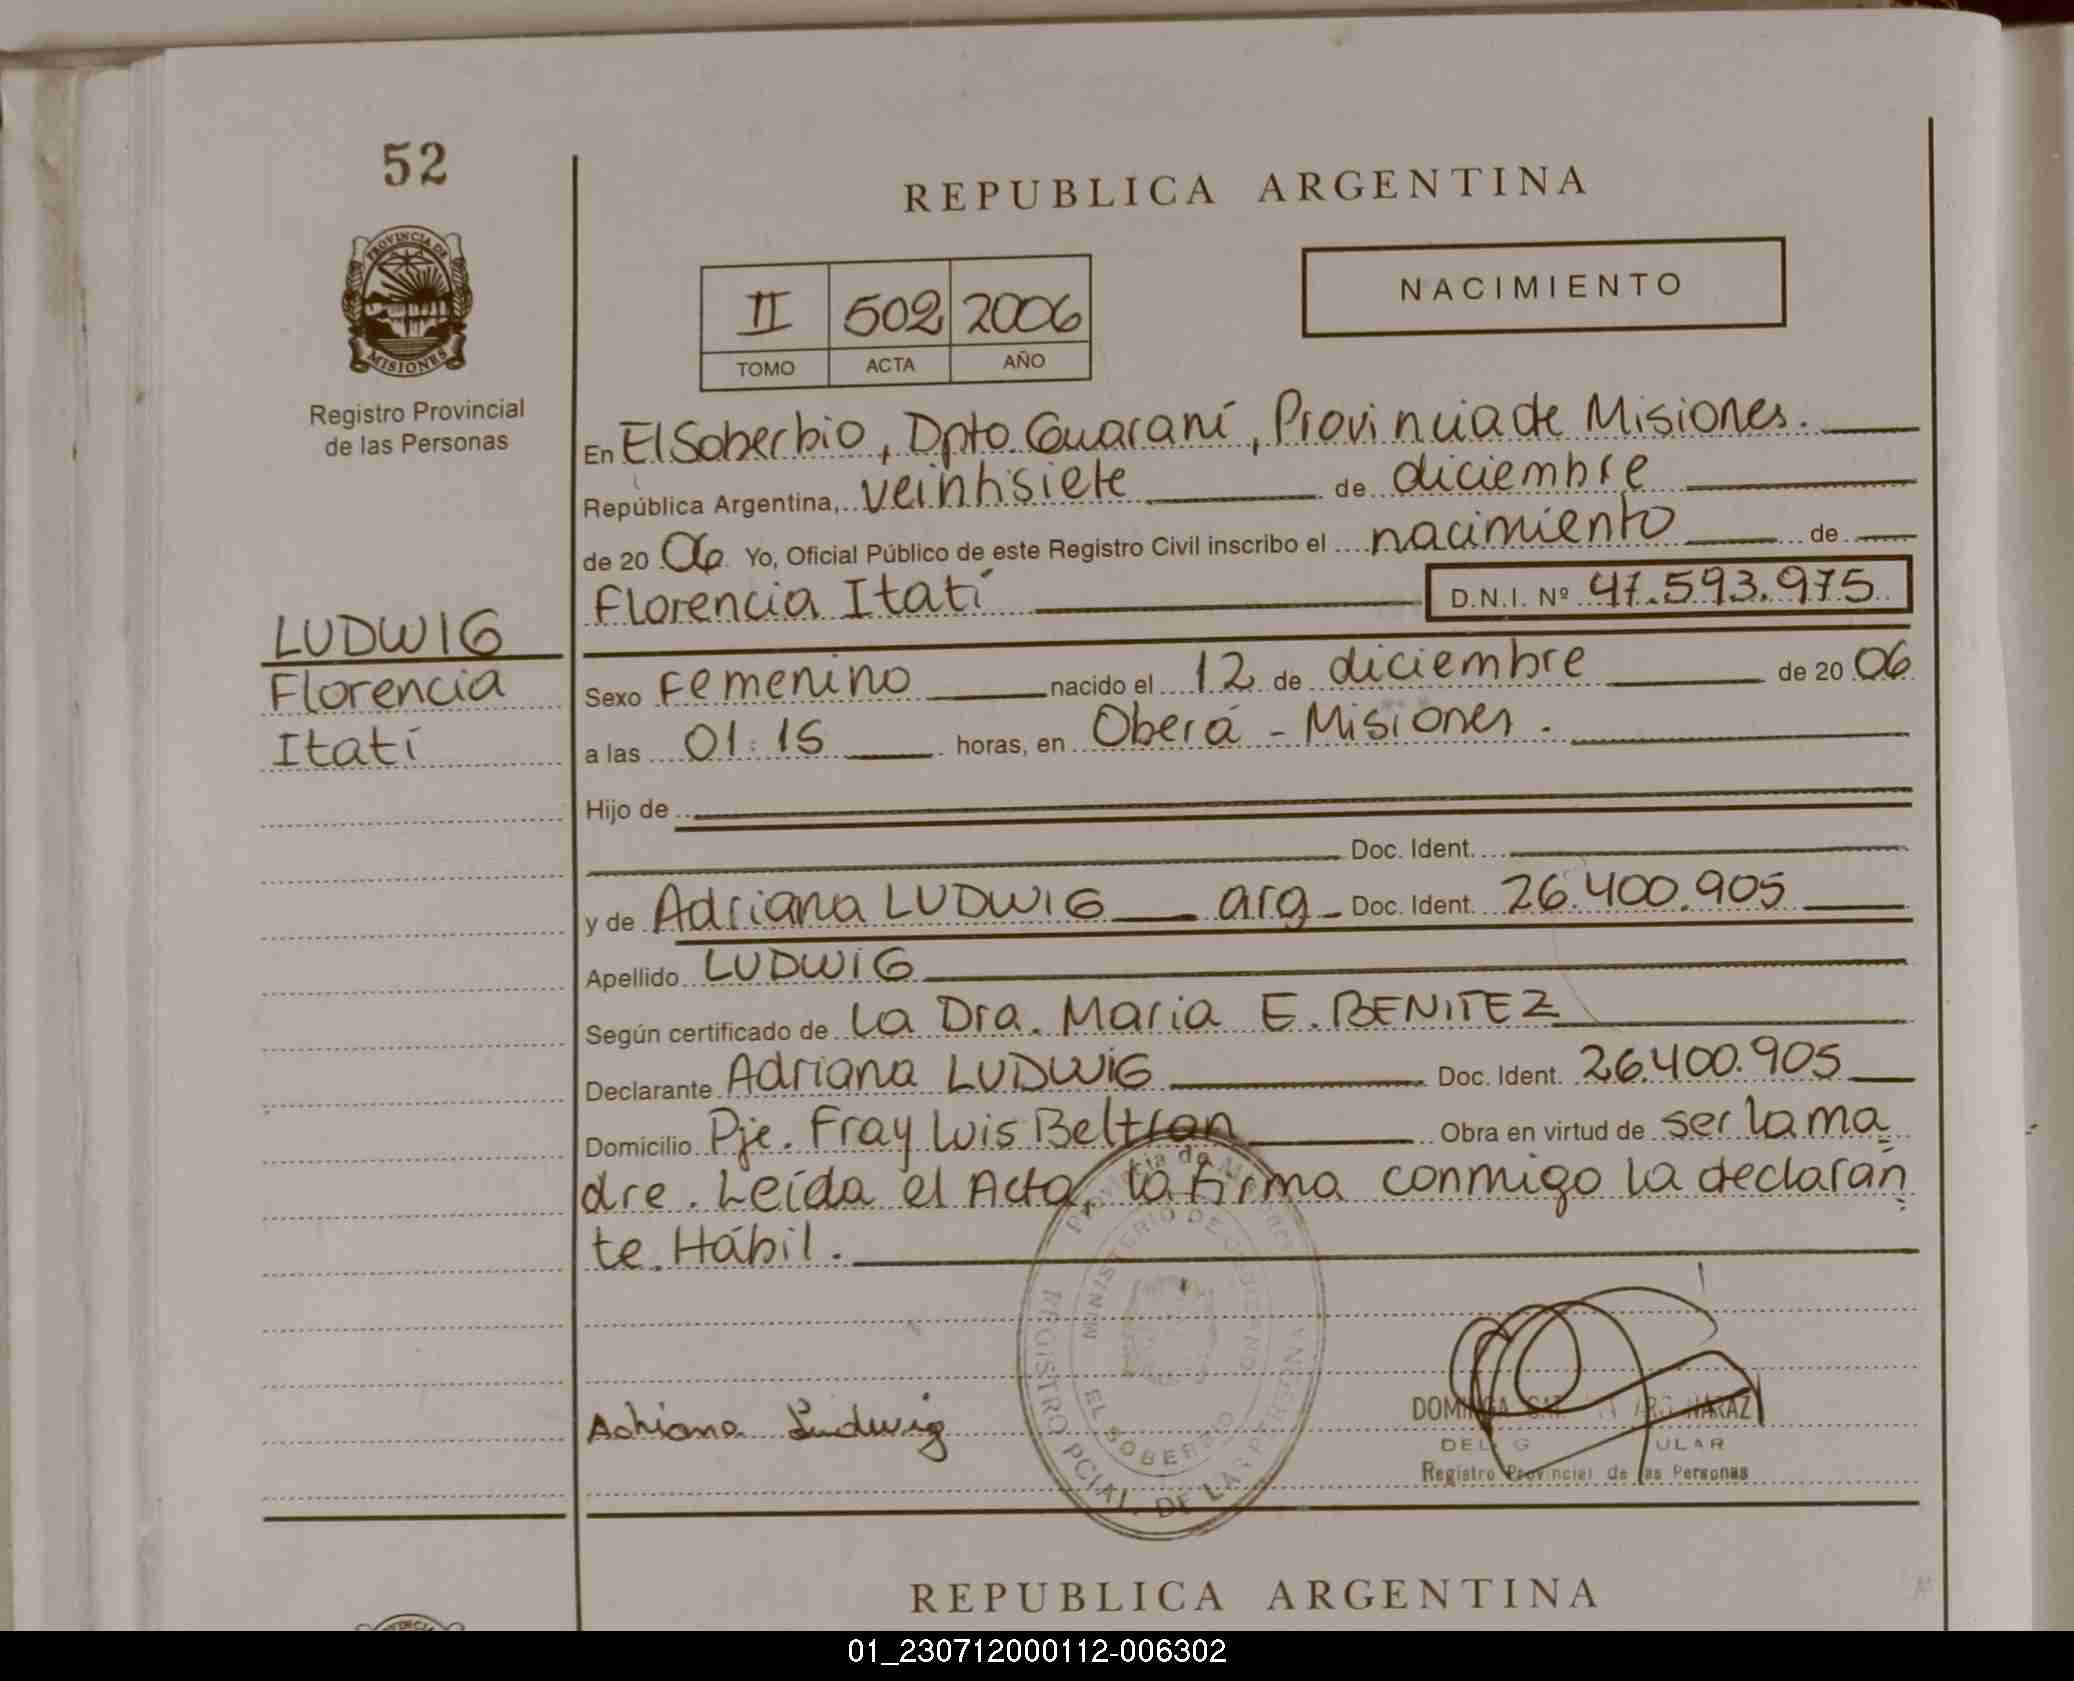 52
REPUBLICA ARGENTINA
PROVINCIA DE
MISIONES
Registro Provincial
de las Personas
II 502 2006
TOMO ACTA AÑO
NACIMIENTO
En El Soberbio, Dpto. Guaraní, Provincia de Misiones.
República Argentina, veintisiete de diciembre
de 20 06 Yo, Oficial Público de este Registro Civil inscribo el nacimiento de
Florencia Itatí D.N.I. Nº 47.593.975
LUDWIG
Florencia
Itatí
Sexo Femenino nacido el 12 de diciembre de 20 06
a las 01:15 horas, en Oberá - Misiones.
Hijo de
Doc. Ident.
y de Adriana LUDWIG arg Doc. Ident. 26.400.905
Apellido LUDWIG
Según certificado de La Dra. Maria E. BENITEZ
Declarante Adriana LUDWIG Doc. Ident. 26.400.905
Domicilio Pje. Fray Luis Beltran Obra en virtud de ser la ma
dre. Leída el Acta, la firma conmigo la declaran
te. Hábil.
Provincia de
MINISTERIO DE
EL SOBERBIO
REGISTRO PCIAL. DE LAS PERSONA
Adriana Ludwig
Registro Provincial de las Personas
REPUBLICA ARGENTINA
01_230712000112-006302